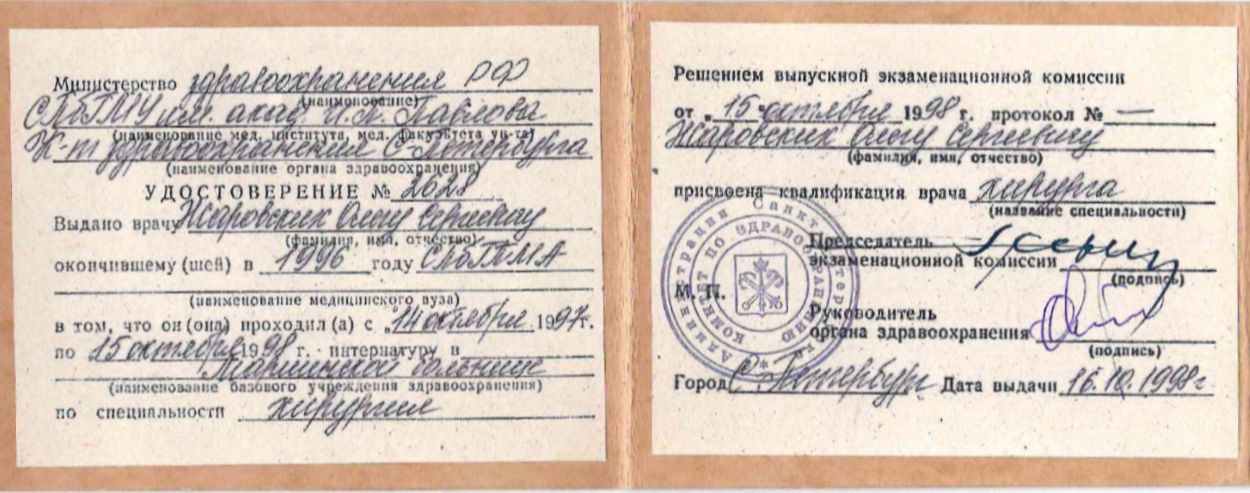 Министерство здравоохранения РФ
СПбГМУ им. акад. И.П. Павлова
(наименование)
(наименование мед. института, мед. факультета ун-та)
К-т здравоохранения С-Петербурга
(наименование органа здравоохранения)
УДОСТОВЕРЕНИЕ № 2028
Выдано врачу Жаровских Олегу Сергеевичу
(фамилия, имя, отчество)
окончившему (шей) в 1996 году СПбГПМА
(наименование медицинского вуза)
в том, что он (она) проходил (а) с „14 октября 1997г.
по 15 октября 1998 г. интернатуру в
больнице
(наименование базового учреждения здравоохранения)
по специальности хирургия
Решением выпускной экзаменационной комиссии
от „15" октября 1998 г. протокол № —
Жаровских Олегу Сергеевичу
(фамилия, имя, отчество)
присвоена квалификация врача хирурга
(название специальности)
Председатель
экзаменационной комиссии
(подпись)
М. П.
Руководитель
органа здравоохранения
(подпись)
Город С-Петербург Дата выдачи 16.10.1998г
Администрация Санкт-Петербурга
КОМИТЕТ ПО ЗДРАВООХРАНЕНИЮ